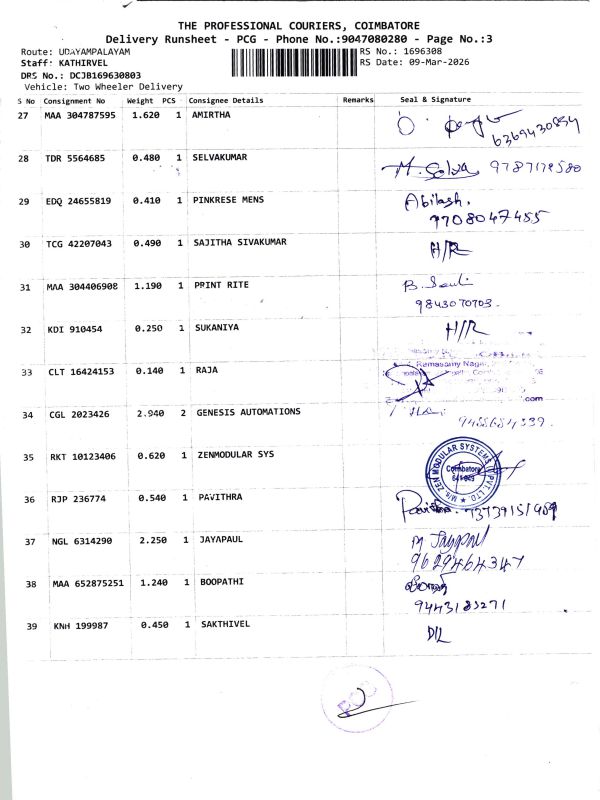 THE PROFESSIONAL COURIERS, COIMBATORE
Delivery Runsheet - PCG - Phone No.:9047080280 - Page No.:3
Route: UDAYAMPALAYAM RS No.: 1696308
Staff: KATHIRVEL RS Date: 09-Mar-2026
DRS No.: DCJB169630803
Vehicle: Two Wheeler Delivery
S No Consignment No Weight PCS Consignee Details Remarks Seal & Signature
27 MAA 304787595 1.620 1 AMIRTHA
6369430894
28 TDR 5564685 0.480 1 SELVAKUMAR
M. Selva 9787178580
29 EDQ 24655819 0.410 1 PINKRESE MENS Abilash.
7708047455
30 TCG 42207043 0.490 1 SAJITHA SIVAKUMAR H/R
31 MAA 304406908 1.190 1 PRINT RITE
9843070703.
32 KDI 910454 0.250 1 SUKANIYA H/R
33 CLT 16424153 0.140 1 RAJA Ramasamy Nagar,
.com
34 CGL 2023426 2.940 2 GENESIS AUTOMATIONS
35 RKT 10123406 0.620 1 ZENMODULAR SYS M/s. ZEN MODULAR SYSTEMS PVT. LTD. ★
Coimbatore
36 RJP 236774 0.540 1 PAVITHRA Pavithra. 73739151909
37 NGL 6314290 2.250 1 JAYAPAUL M Jaypaul
9629464347
38 MAA 652875251 1.240 1 BOOPATHI
9443183271
39 KNH 199987 0.450 1 SAKTHIVEL D/L